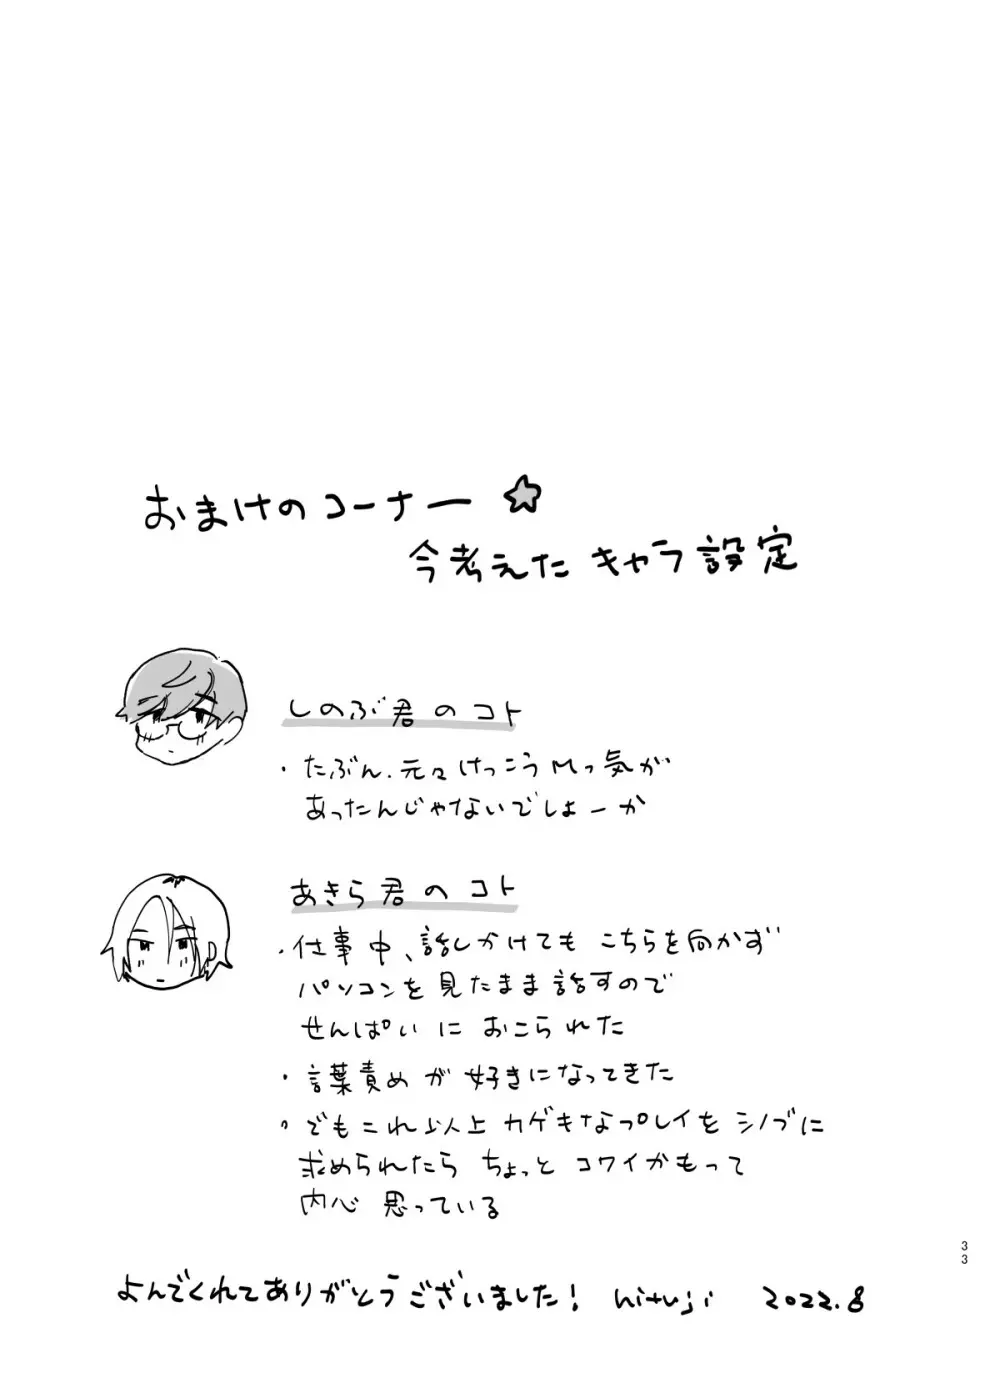 おまけのコーナー☆
今考えた キャラ設定
しのぶ君のコト
・たぶん、元々けっこうMっ気が
あったんじゃないでしょーか
あきら君のコト
・仕事中、話しかけても こちらを向かず
パソコンを見たまま話すので
せんぱいに おこられた
・言葉責めが好きになってきた
・でもこれ以上 カゲキなプレイを シノブに
求められたら ちょっと コワイかもって
内心 思っている
33
よんでくれてありがとうございました! hituji 2022.8